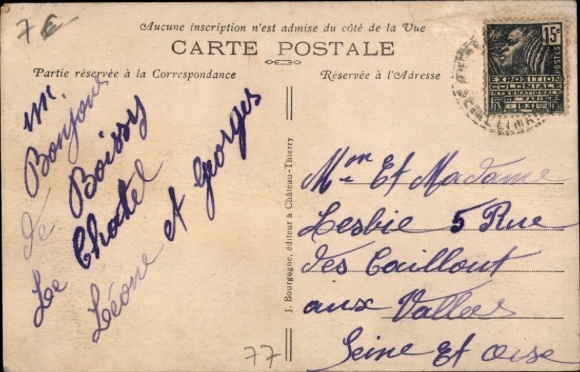 7 €
Aucune inscription n'est admise du côté de la Vue
CARTE POSTALE
Partie réservée à la Correspondance
Réservée à l'Adresse
15c
POSTES
EXPOSITION
COLONIALE
INTERNATIONALE
PARIS
1931
SEINE ET MARNE
m.
Bonjour
de Boissy
Le Chatel
Léone et Georges
J. Bourgogne, éditeur à Château-Thierry
Mon Et Madame
Lesbie 5 Rue
des Caillout
aux Vallées
Seine Et Oise
77